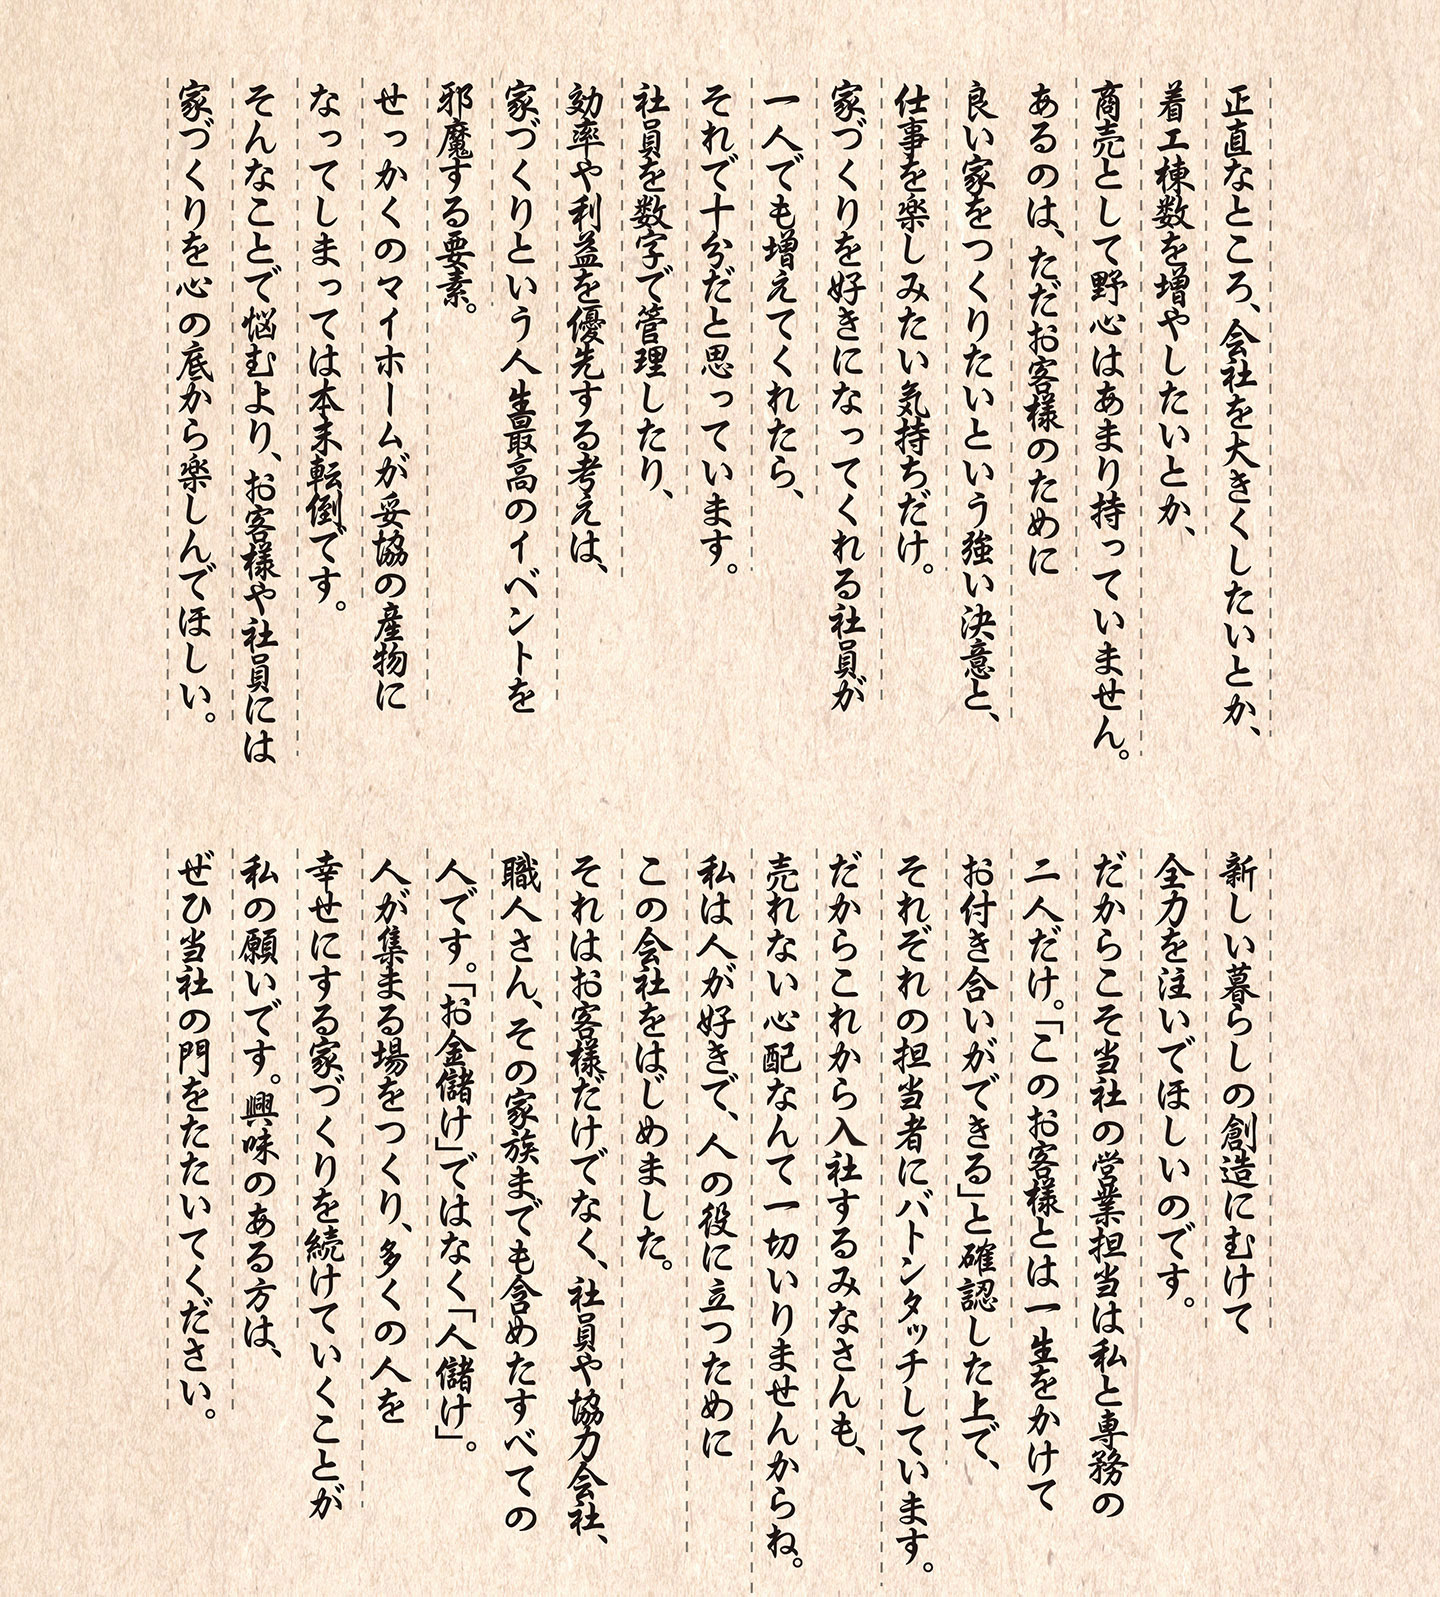 正直なところ、会社を大きくしたいとか、
着工棟数を増やしたいとか、
商売として野心はあまり持っていません。
あるのは、ただお客様のために
良い家をつくりたいという強い決意と、
仕事を楽しみたい気持ちだけ。
家づくりを好きになってくれる社員が
一人でも増えてくれたら、
それで十分だと思っています。
社員を数字で管理したり、
効率や利益を優先する考えは、
家づくりという人生最高のイベントを
邪魔する要素。
せっかくのマイホームが妥協の産物に
なってしまっては本末転倒です。
そんなことで悩むより、お客様や社員には
家づくりを心の底から楽しんでほしい。
新しい暮らしの創造にむけて
全力を注いでほしいのです。
だからこそ当社の営業担当は私と専務の
二人だけ。「このお客様とは一生をかけて
お付き合いができる」と確認した上で、
それぞれの担当者にバトンタッチしています。
だからこれから入社するみなさんも、
売れない心配なんて一切いりませんからね。
私は人が好きで、人の役に立つために
この会社をはじめました。
それはお客様だけでなく、社員や協力会社、
職人さん、その家族までも含めたすべての
人です。「お金儲け」ではなく「人儲け」。
人が集まる場をつくり、多くの人を
幸せにする家づくりを続けていくことが
私の願いです。興味のある方は、
ぜひ当社の門をたたいてください。